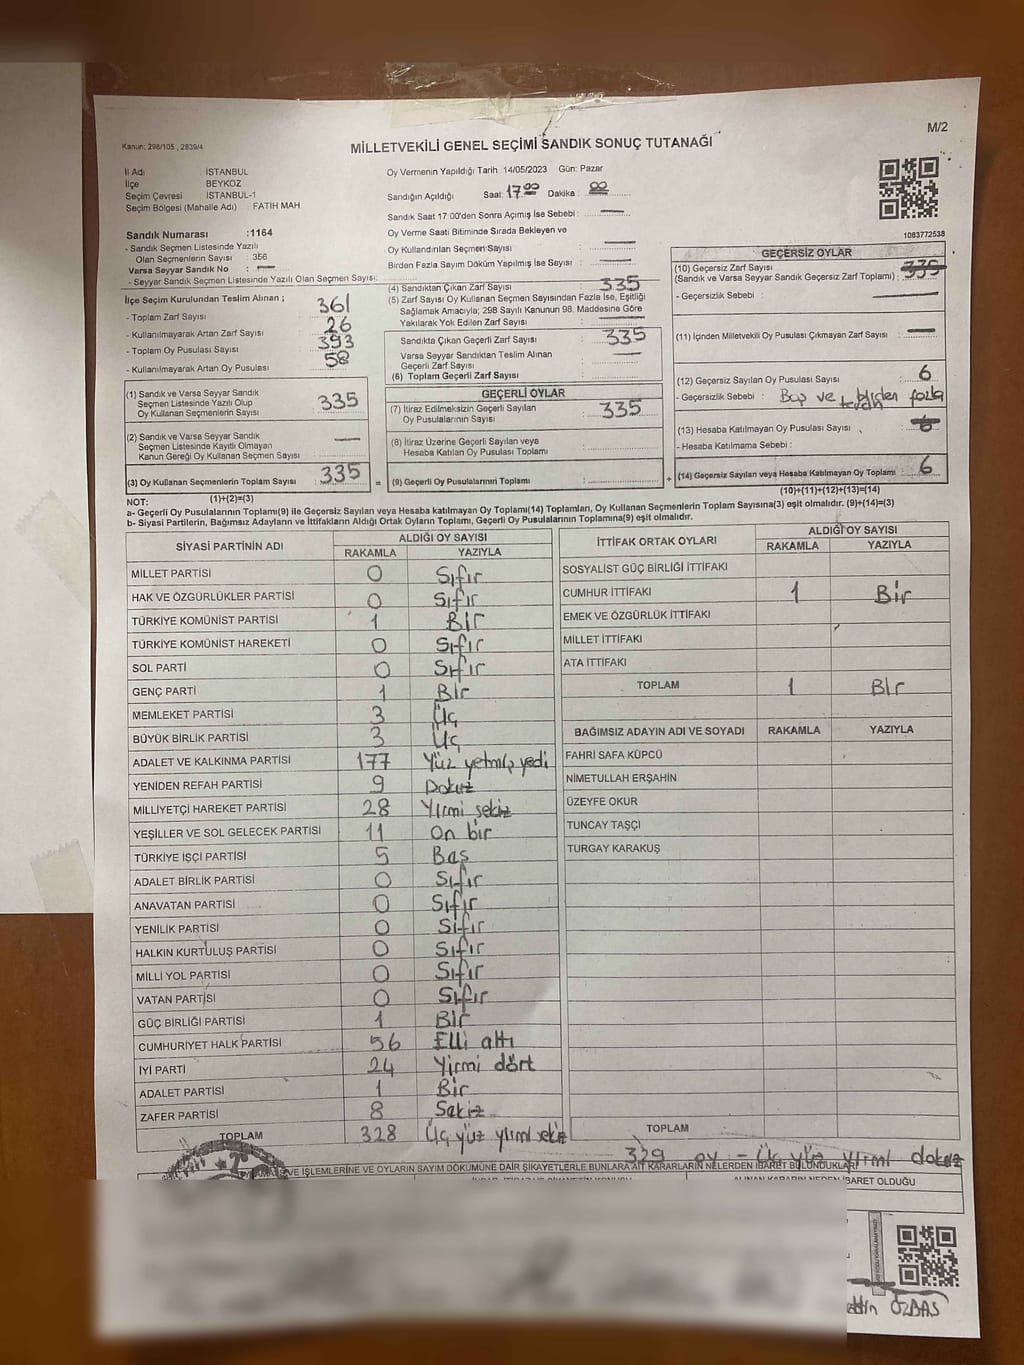 M/2
Kanun; 298/105 , 2839/4
MİLLETVEKİLİ GENEL SEÇİMİ SANDIK SONUÇ TUTANAĞI
İl Adı : İSTANBUL
İlçe BEYKOZ
Seçim Çevresi : İSTANBUL-1
Seçim Bölgesi (Mahalle Adı) : FATİH MAH.
Sandık Numarası :1164
- Sandık Seçmen Listesinde Yazılı
Olan Seçmenlerin Sayısı : 356
Varsa Seyyar Sandık No : —
- Seyyar Sandık Seçmen Listesinde Yazılı Olan Seçmen Sayısı:
Oy Vermenin Yapıldığı Tarih : 14/05/2023 Gün: Pazar
Sandığın Açıldığı Saat: 17.00 Dakika : 00
Sandık Saat 17:00'den Sonra Açımış İse Sebebi : —
Oy Verme Saati Bitiminde Sırada Bekleyen ve
Oy Kullandırılan Seçmen Sayısı : —
Birden Fazla Sayım Döküm Yapılmış İse Sayısı : —
1083772538
İlçe Seçim Kurulundan Teslim Alınan ;
- Toplam Zarf Sayısı : 361
- Kullanılmayarak Artan Zarf Sayısı : 26
- Toplam Oy Pusulası Sayısı : 393
- Kullanılmayarak Artan Oy Pusulası : 58
(1) Sandık ve Varsa Seyyar Sandık
Seçmen Listesinde Yazılı Olup
Oy Kullanan Seçmenlerin Sayısı : 335
(2) Sandık ve Varsa Seyyar Sandık
Seçmen Listesinde Kayıtlı Olmayan
Kanun Gereği Oy Kullanan Seçmen Sayısı : —
(3) Oy Kullanan Seçmenlerin Toplam Sayısı : 335
(1)+(2)=(3)
(4) Sandıktan Çıkan Zarf Sayısı : 335
(5) Zarf Sayısı Oy Kullanan Seçmen Sayısından Fazla İse, Eşitliği
Sağlamak Amacıyla; 298 Sayılı Kanunun 98. Maddesine Göre
Yakılarak Yok Edilen Zarf Sayısı : —
Sandıkta Çıkan Geçerli Zarf Sayısı : 335
Varsa Seyyar Sandıktan Teslim Alınan
Geçerli Zarf Sayısı : —
(6) Toplam Geçerli Zarf Sayısı :
GEÇERLİ OYLAR
(7) İtiraz Edilmeksizin Geçerli Sayılan
Oy Pusulalarının Sayısı : 335
(8) İtiraz Üzerine Geçerli Sayılan veya
Hesaba Katılan Oy Pusulası Toplamı :
= (9) Geçerli Oy Pusulalarının Toplamı :
GEÇERSİZ OYLAR
(10) Geçersiz Zarf Sayısı
(Sandık ve Varsa Seyyar Sandık Geçersiz Zarf Toplamı) : 335
- Geçersizlik Sebebi : —
(11) İçinden Milletvekili Oy Pusulası Çıkmayan Zarf Sayısı : —
(12) Geçersiz Sayılan Oy Pusulası Sayısı : 6
- Geçersizlik Sebebi : Boş ve birden fazla
(13) Hesaba Katılmayan Oy Pusulası Sayısı : 6
- Hesaba Katılmama Sebebi :
+ (14) Geçersiz Sayılan veya Hesaba Katılmayan Oy Toplamı : 6
(10)+(11)+(12)+(13)=(14)
NOT:
a- Geçerli Oy Pusulalarının Toplamı(9) ile Geçersiz Sayılan veya Hesaba katılmayan Oy Toplamı(14) Toplamları, Oy Kullanan Seçmenlerin Toplam Sayısına(3) eşit olmalıdır. (9)+(14)=(3)
b- Siyasi Partilerin, Bağımsız Adayların ve İttifakların Aldığı Ortak Oyların Toplamı, Geçerli Oy Pusulalarının Toplamına(9) eşit olmalıdır.
SİYASİ PARTİNİN ADI ALDIĞI OY SAYISI
RAKAMLA YAZIYLA
MİLLET PARTİSİ 0 Sıfır
HAK VE ÖZGÜRLÜKLER PARTİSİ 0 Sıfır
TÜRKİYE KOMÜNİST PARTİSİ 1 Bir
TÜRKİYE KOMÜNİST HAREKETİ 0 Sıfır
SOL PARTİ 0 Sıfır
GENÇ PARTİ 1 Bir
MEMLEKET PARTİSİ 3 Üç
BÜYÜK BİRLİK PARTİSİ 3 Üç
ADALET VE KALKINMA PARTİSİ 177 Yüz yetmiş yedi
YENİDEN REFAH PARTİSİ 9 Dokuz
MİLLİYETÇİ HAREKET PARTİSİ 28 Yirmi sekiz
YEŞİLLER VE SOL GELECEK PARTİSİ 11 On bir
TÜRKİYE İŞÇİ PARTİSİ 5 Beş
ADALET BİRLİK PARTİSİ 0 Sıfır
ANAVATAN PARTİSİ 0 Sıfır
YENİLİK PARTİSİ 0 Sıfır
HALKIN KURTULUŞ PARTİSİ 0 Sıfır
MİLLİ YOL PARTİSİ 0 Sıfır
VATAN PARTİSİ 0 Sıfır
GÜÇ BİRLİĞİ PARTİSİ 1 Bir
CUMHURİYET HALK PARTİSİ 56 Elli altı
İYİ PARTİ 24 Yirmi dört
ADALET PARTİSİ 1 Bir
ZAFER PARTİSİ 8 Sekiz
TOPLAM 328 Üç yüz yirmi sekiz
İTTİFAK ORTAK OYLARI ALDIĞI OY SAYISI
RAKAMLA YAZIYLA
SOSYALİST GÜÇ BİRLİĞİ İTTİFAKI
CUMHUR İTTİFAKI 1 Bir
EMEK VE ÖZGÜRLÜK İTTİFAKI
MİLLET İTTİFAKI
ATA İTTİFAKI
TOPLAM 1 Bir
BAĞIMSIZ ADAYIN ADI VE SOYADI RAKAMLA YAZIYLA
FAHRİ SAFA KÜPCÜ
NİMETULLAH ERŞAHİN
ÜZEYFE OKUR
TUNCAY TAŞÇI
TURGAY KARAKUŞ
TOPLAM
329 oy - Üç yüz yirmi dokuz
VE İŞLEMLERİNE VE OYLARIN SAYIM DÖKÜMÜNE DAİR ŞİKAYETLERLE BUNLARA AİT KARARLARIN NELERDEN İBARET BULUNDUKLARI
ALINAN KARARIN NEDEN İBARET OLDUĞU
ÖZBAŞ